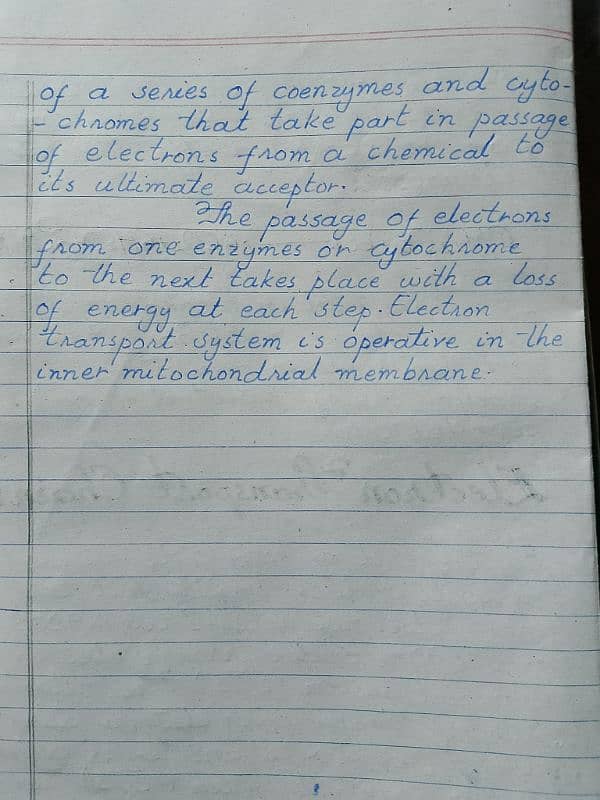 of a series of coenzymes and cyto-
- chromes that take part in passage
of electrons from a chemical to
its ultimate acceptor.
The passage of electrons
from one enzymes or cytochrome
to the next takes place with a loss
of energy at each step. Electron
transport system is operative in the
inner mitochondrial membrane.